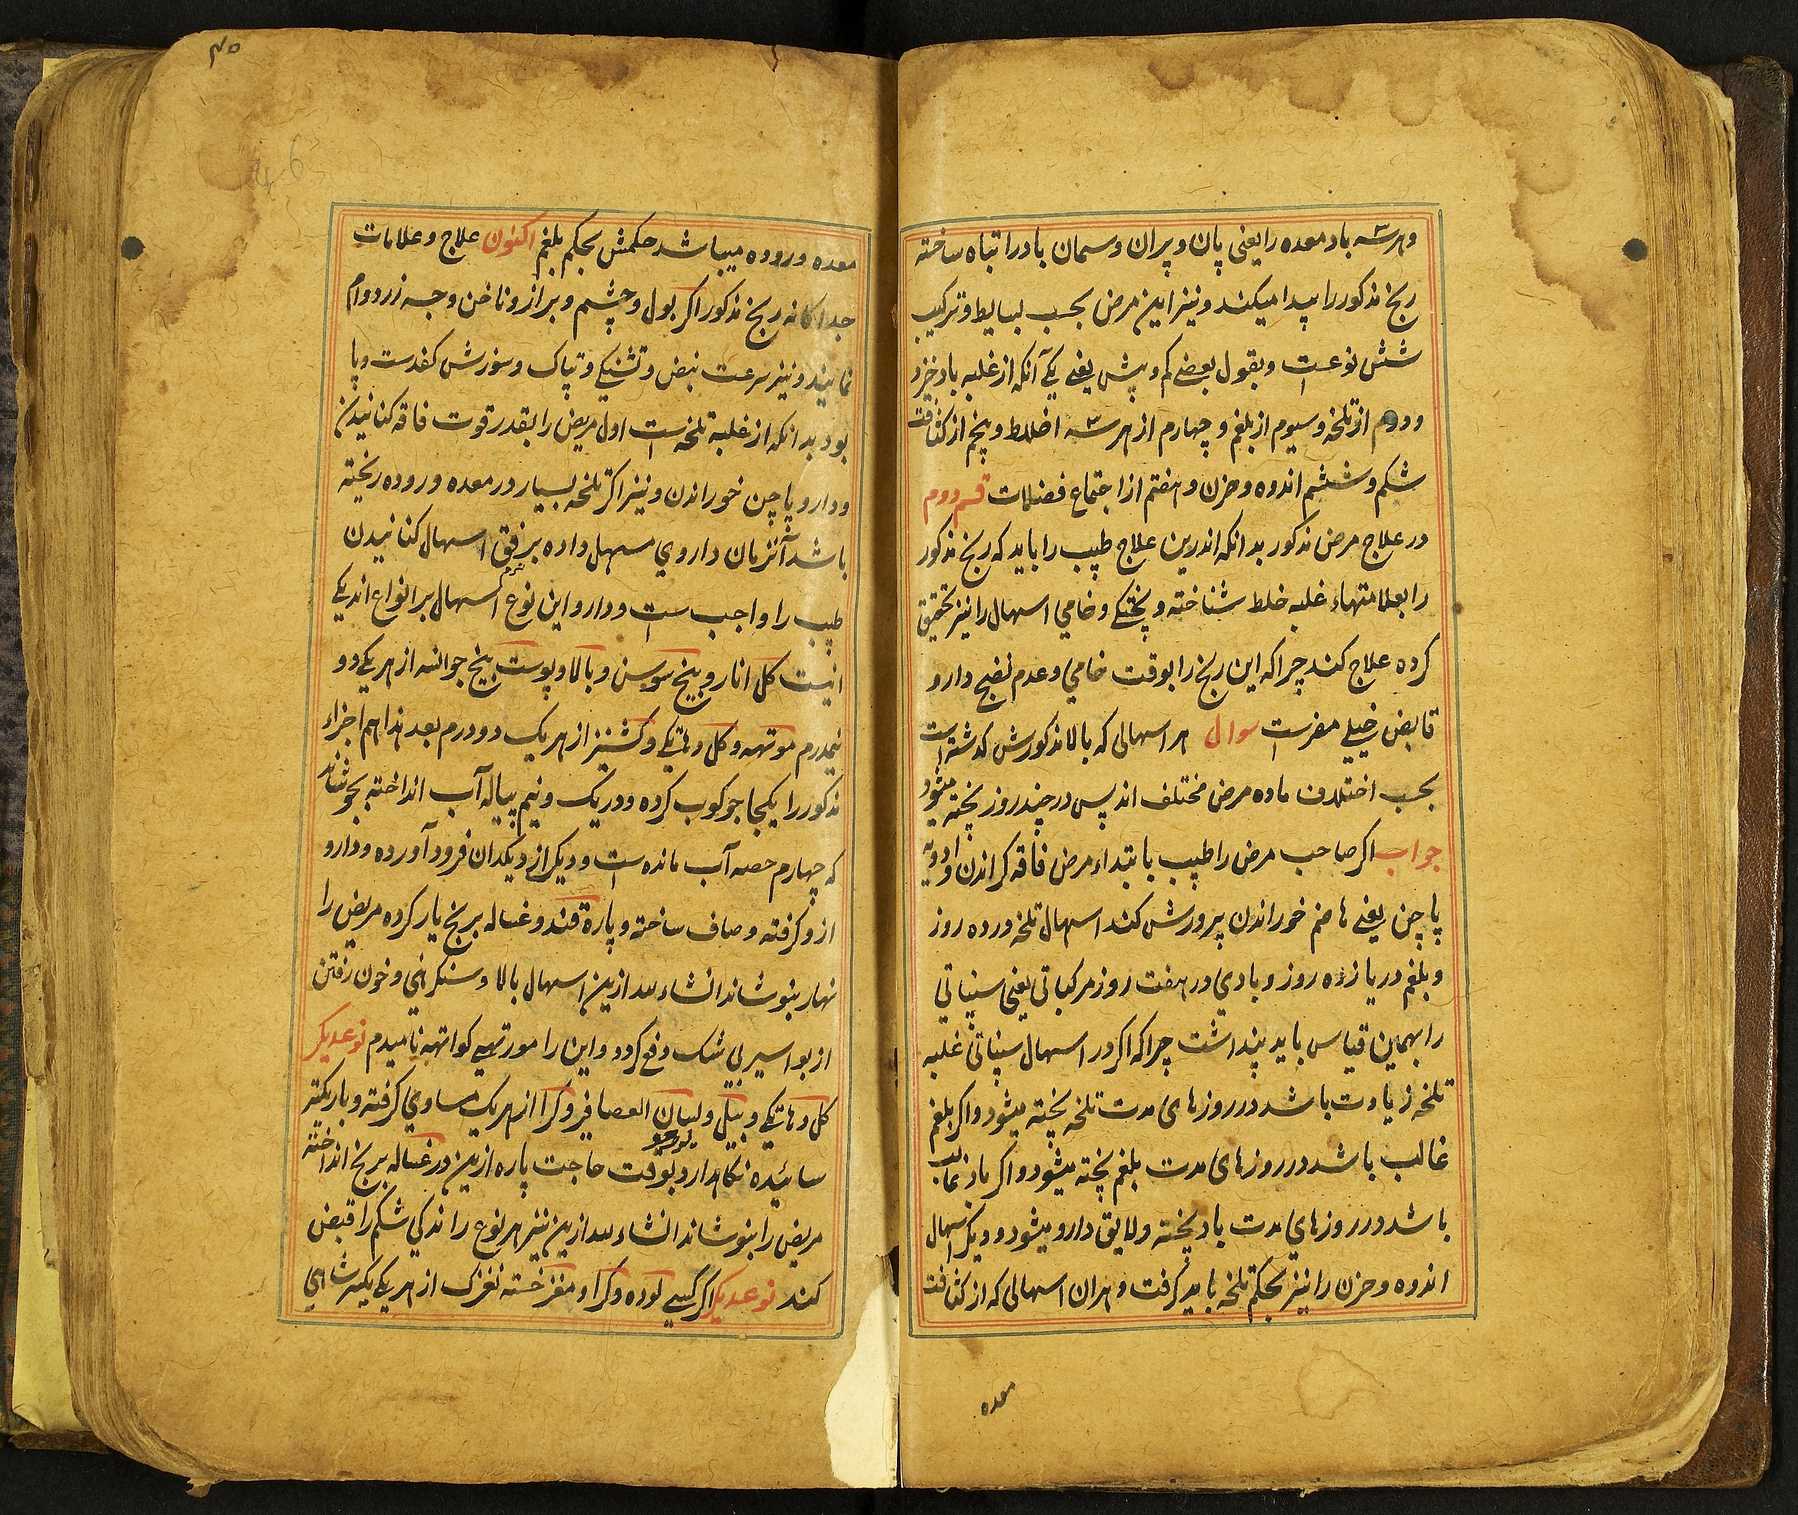 وهر سه باد معده را یعنی پان و پران و سمان باد را تباه ساخته
رنج مذکور را پیدا میکند و نیز این مرض بحسب بسایط و ترکیب
شش نوعست و بقول بعضے کم و بیش یعنے یکے آنکه از غلبه باد خیزد
و دوم از تلخه و سیوم از بلغم و چهارم از هر سه اخلاط و پنجم از کثافت
شکم و ششم اندوه و حزن و هفتم از اجتماع فضلات قسم دوم
در علاج مرض مذکور بدانکه اندرین علاج طبیب را باید که رنج مذکور
را بعلامتهاء غلبه خلط شناخته و پختکے و خامي اسهال را نیز تحقیق
کرده علاج کند چرا که این رنج را بوقت خامي و عدم نضج دارو
قابض خیلے مضرست سوال هر اسهالی که بالا مذکورش کذشته است
بحسب اختلاف ماده مرض مختلف اند پس در چند روز پخته میشود
جواب اکر صاحب مرض را طبیب بابتداء مرض فاقه کراندن و ادویه
پاچن یعنے هاضم خوراندن پرورش کند اسهال تلخه در ده روز
و بلغم در یازده روز و بادي در هفت روز مرکباتی یعنی سنپاتی
را بهمین قیاس باید پنداشت چرا که اکر در اسهال سنپاتی غلبه
تلخه زیادت باشد در روزهای مدت تلخه پخته میشود و اکر بلغم
غالب باشد در روزهای مدت بلغم پخته میشود و اکر باد غالب
باشد در روزهاي مدت باد پخته و لایق دارو میشود و دیکر اسهال
اندوه و حزن را نیز بحکم تلخه باید کرفت و هران اسهالی که از کثافت
معده
۴۵
46
معده و روده میباشد حکمش بحکم بلغم اکنون علاج و علامات
جداکانه رنج مذکور اکر بول و چشم و براز و ناخن و جسه زرد وام
نمایند و نیز سرعت نبض و تشنکے و تپاک و سوزش کفدست و پا
بود بدانکه از غلبه تلخه است اول مریض را بقدر قوت فاقه کنانیدن
و دارو پاچن خوراندن و نیز اکر تلخه بسیار در معده و روده ریخته
باشد آنزمان داروي مسهل داده برفق اسهال کنانیدن
طبیب را واجب ست و دارو این نوع اسهال بر انواع اند یکے
اینست کل انار و بیخ سوسن و بالا و پوست بیخ جوانسه از هر یکے دو
نیمدرم موتهه و کل و کشنیز از هر یک دو درم بعد هذا هم اجزاء
مذکور را یکجا جوکوب کرده و در یک و نیم پیاله آب انداخته بجوشاند
که چهارم حصه آب مانده است و دیکر از دیکدان فرود آورده و دارو
ازو کرفته و صاف ساخته و پارهٔ قند و غساله برنج یار کرده مریض را
نهار بنوشاند انشاءالله ازین اسهال بالا و سنکرهني و خون رفتن
از بواسیر بی شک دفع کردد و این را نامیدم نوعدیکر
کل دهاتیکے و بیلی و لسان العصافیر و کرا از هر یک مساوي کرفته و باریکتر
سائیده نکاهدارد بوقت حاجت پاره ازین در غساله برنج انداخته
مریض را بنوشاند انشاءالله ازین نیز هر نوع راندکی شکم را قبض
کند نوعدیکر اکر کسے لوده و کرا و مغز خسته نغزک از هر یکے